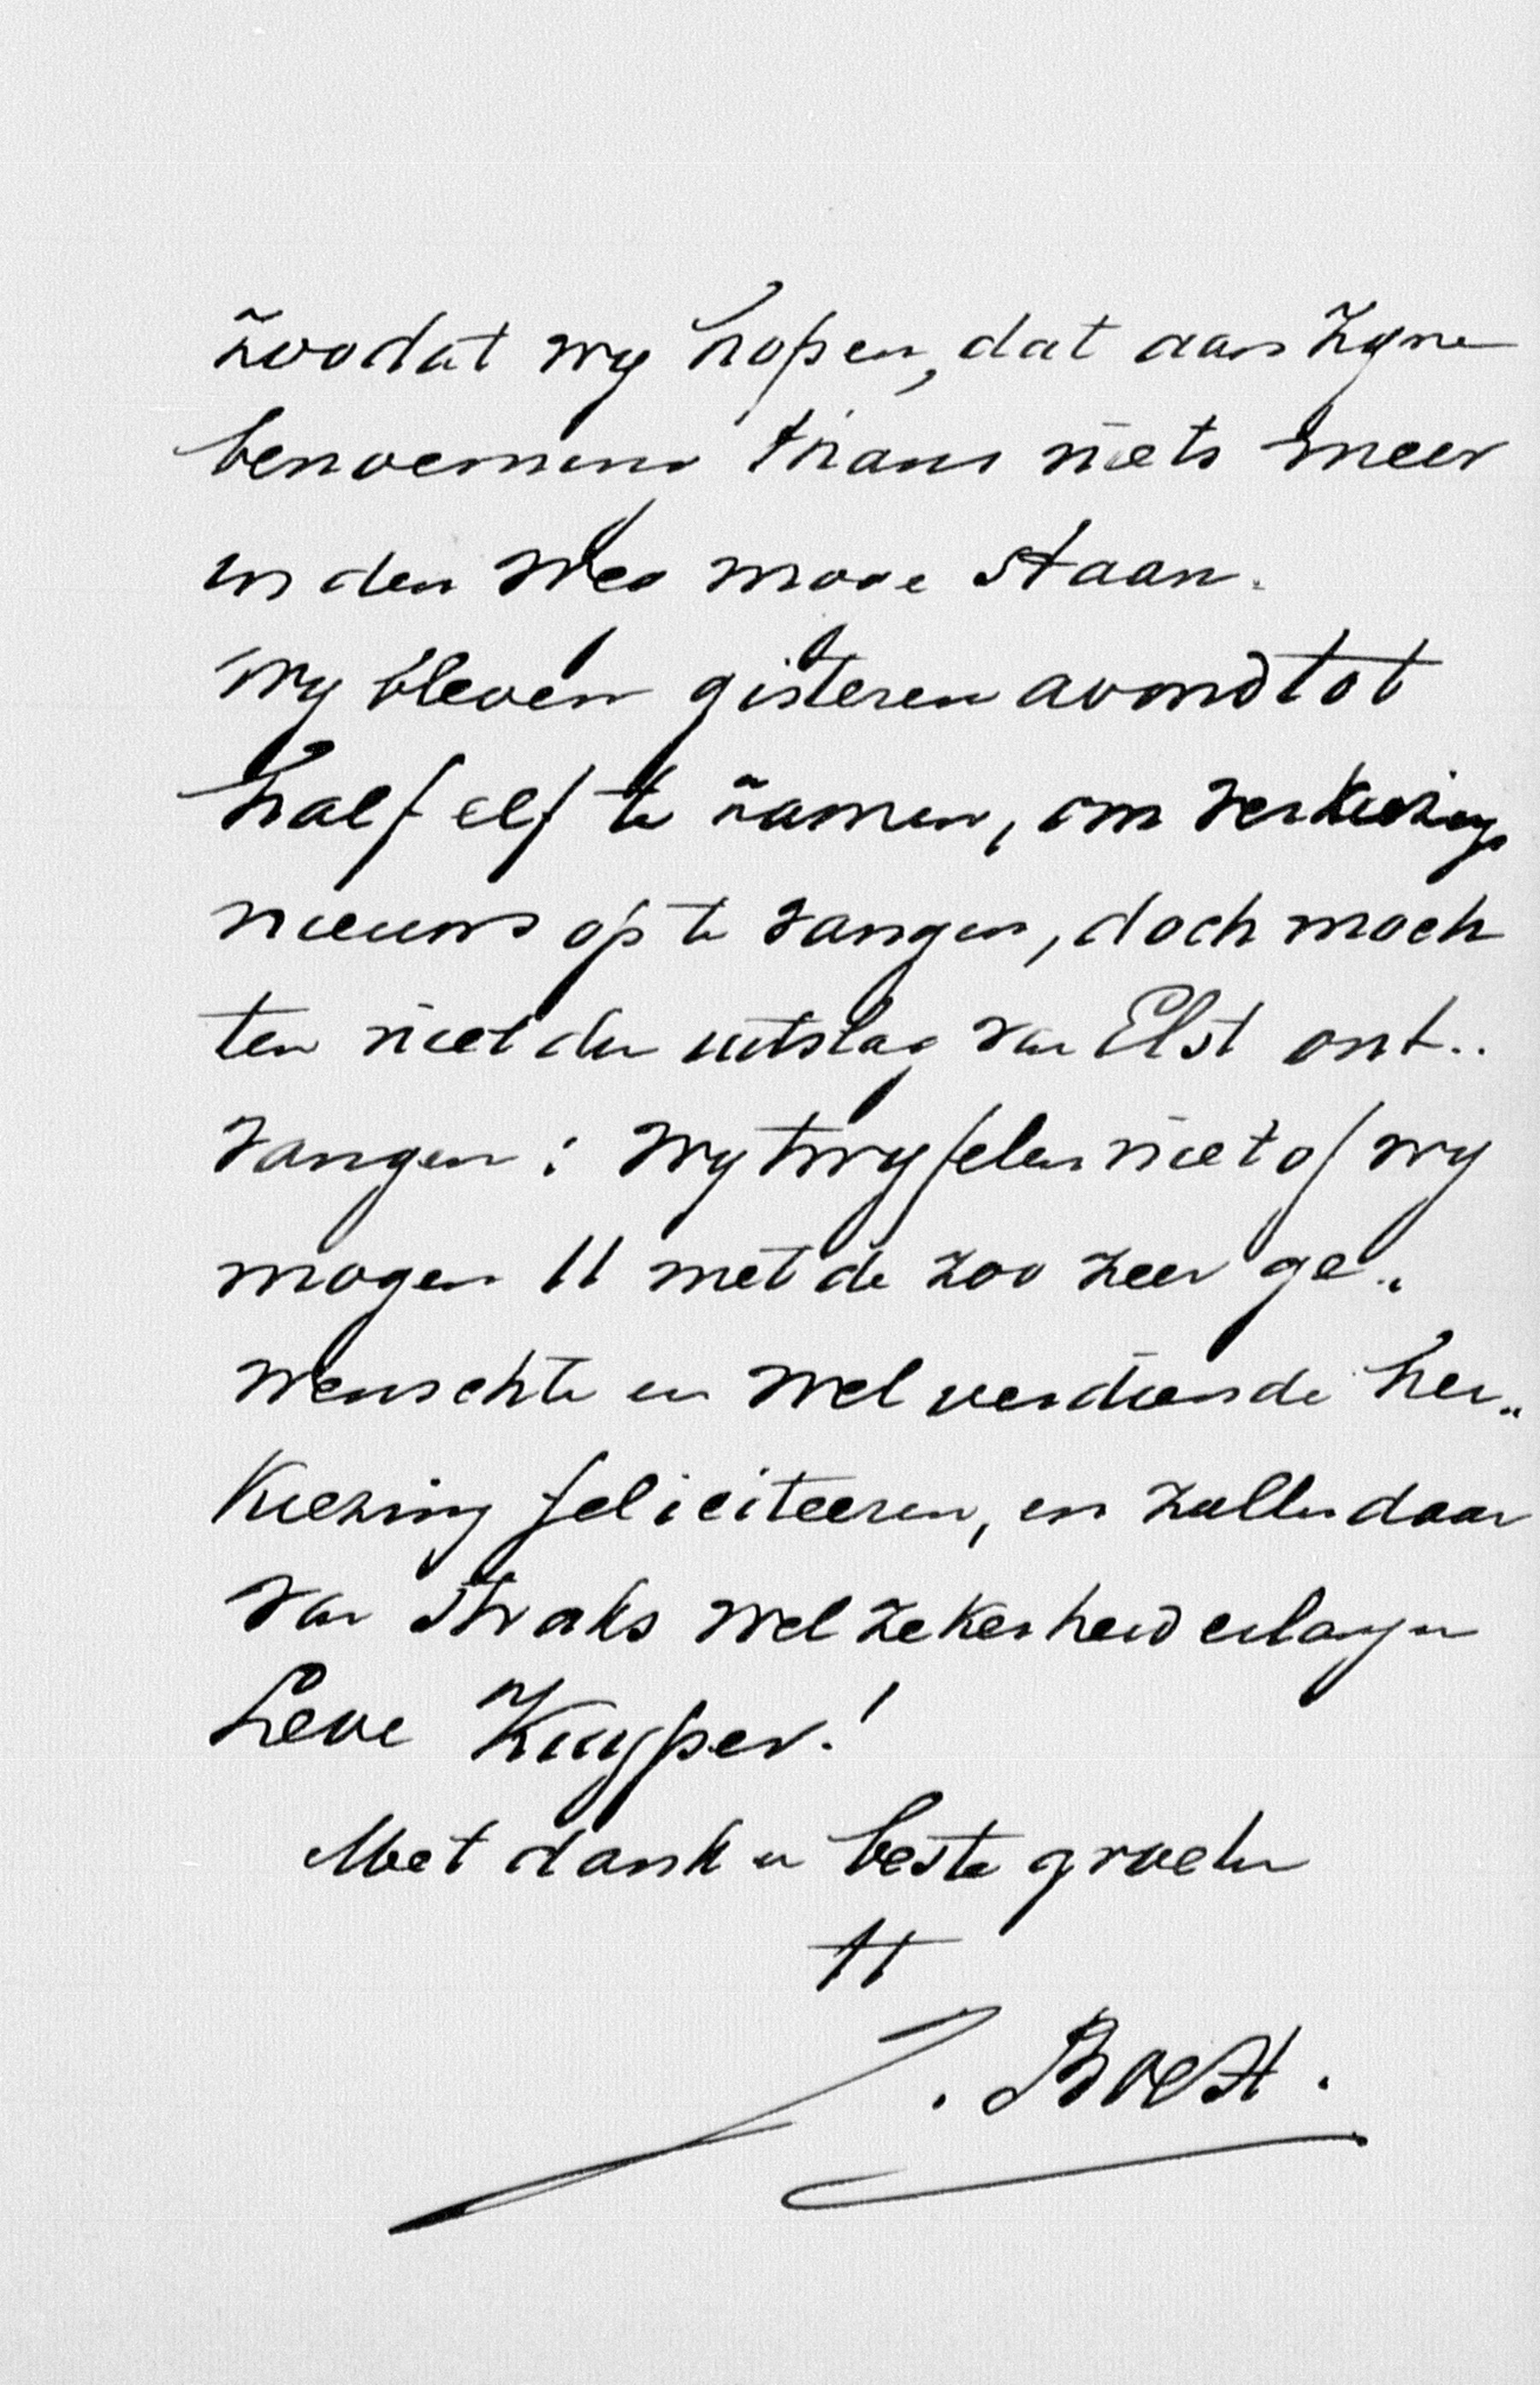 zoodat wy hopen, dat aan zyne
benoeming thans niets meer
in den weg moge staan.
Wy bleven gisteren avond tot
half elf te zamen, om verkiezings
nieuws op te vangen, doch moch
ten niet den uitslag van Elst ont..
vangen: wy twyfelen niet of wy
mogen U met de zoo zeer ge..
wenschte en wel verdiende her..
kiezing feliciteeren, en zullen daar
van straks wel zekerheid erlangen
Leve Kuyper!
Met dank en beste groeten
tt
J. Boest.